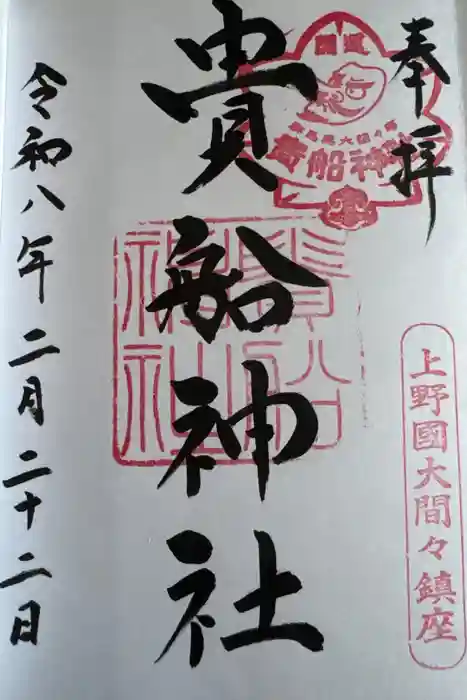 奉拝
貴船神社
令和八年二月二十二日
上野國大間々鎮座
貴船神社
貴船神社